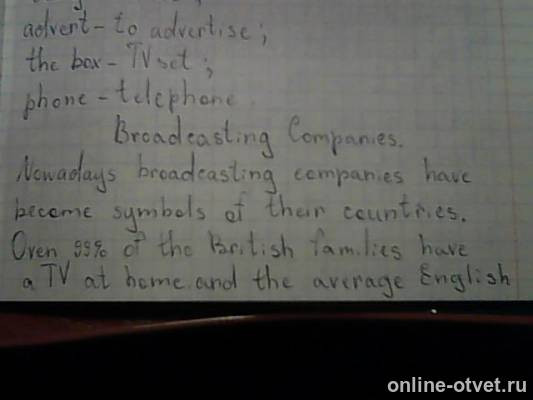 advert - to advertise;
the box - TV set;
phone - telephone
Broadcasting Companies.
Nowadays broadcasting companies have
become symbols of their countries.
Over 99% of the British families have
a TV at home and the average English
online-otvet.ru